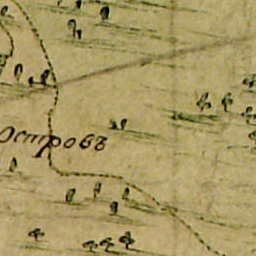 Островъ